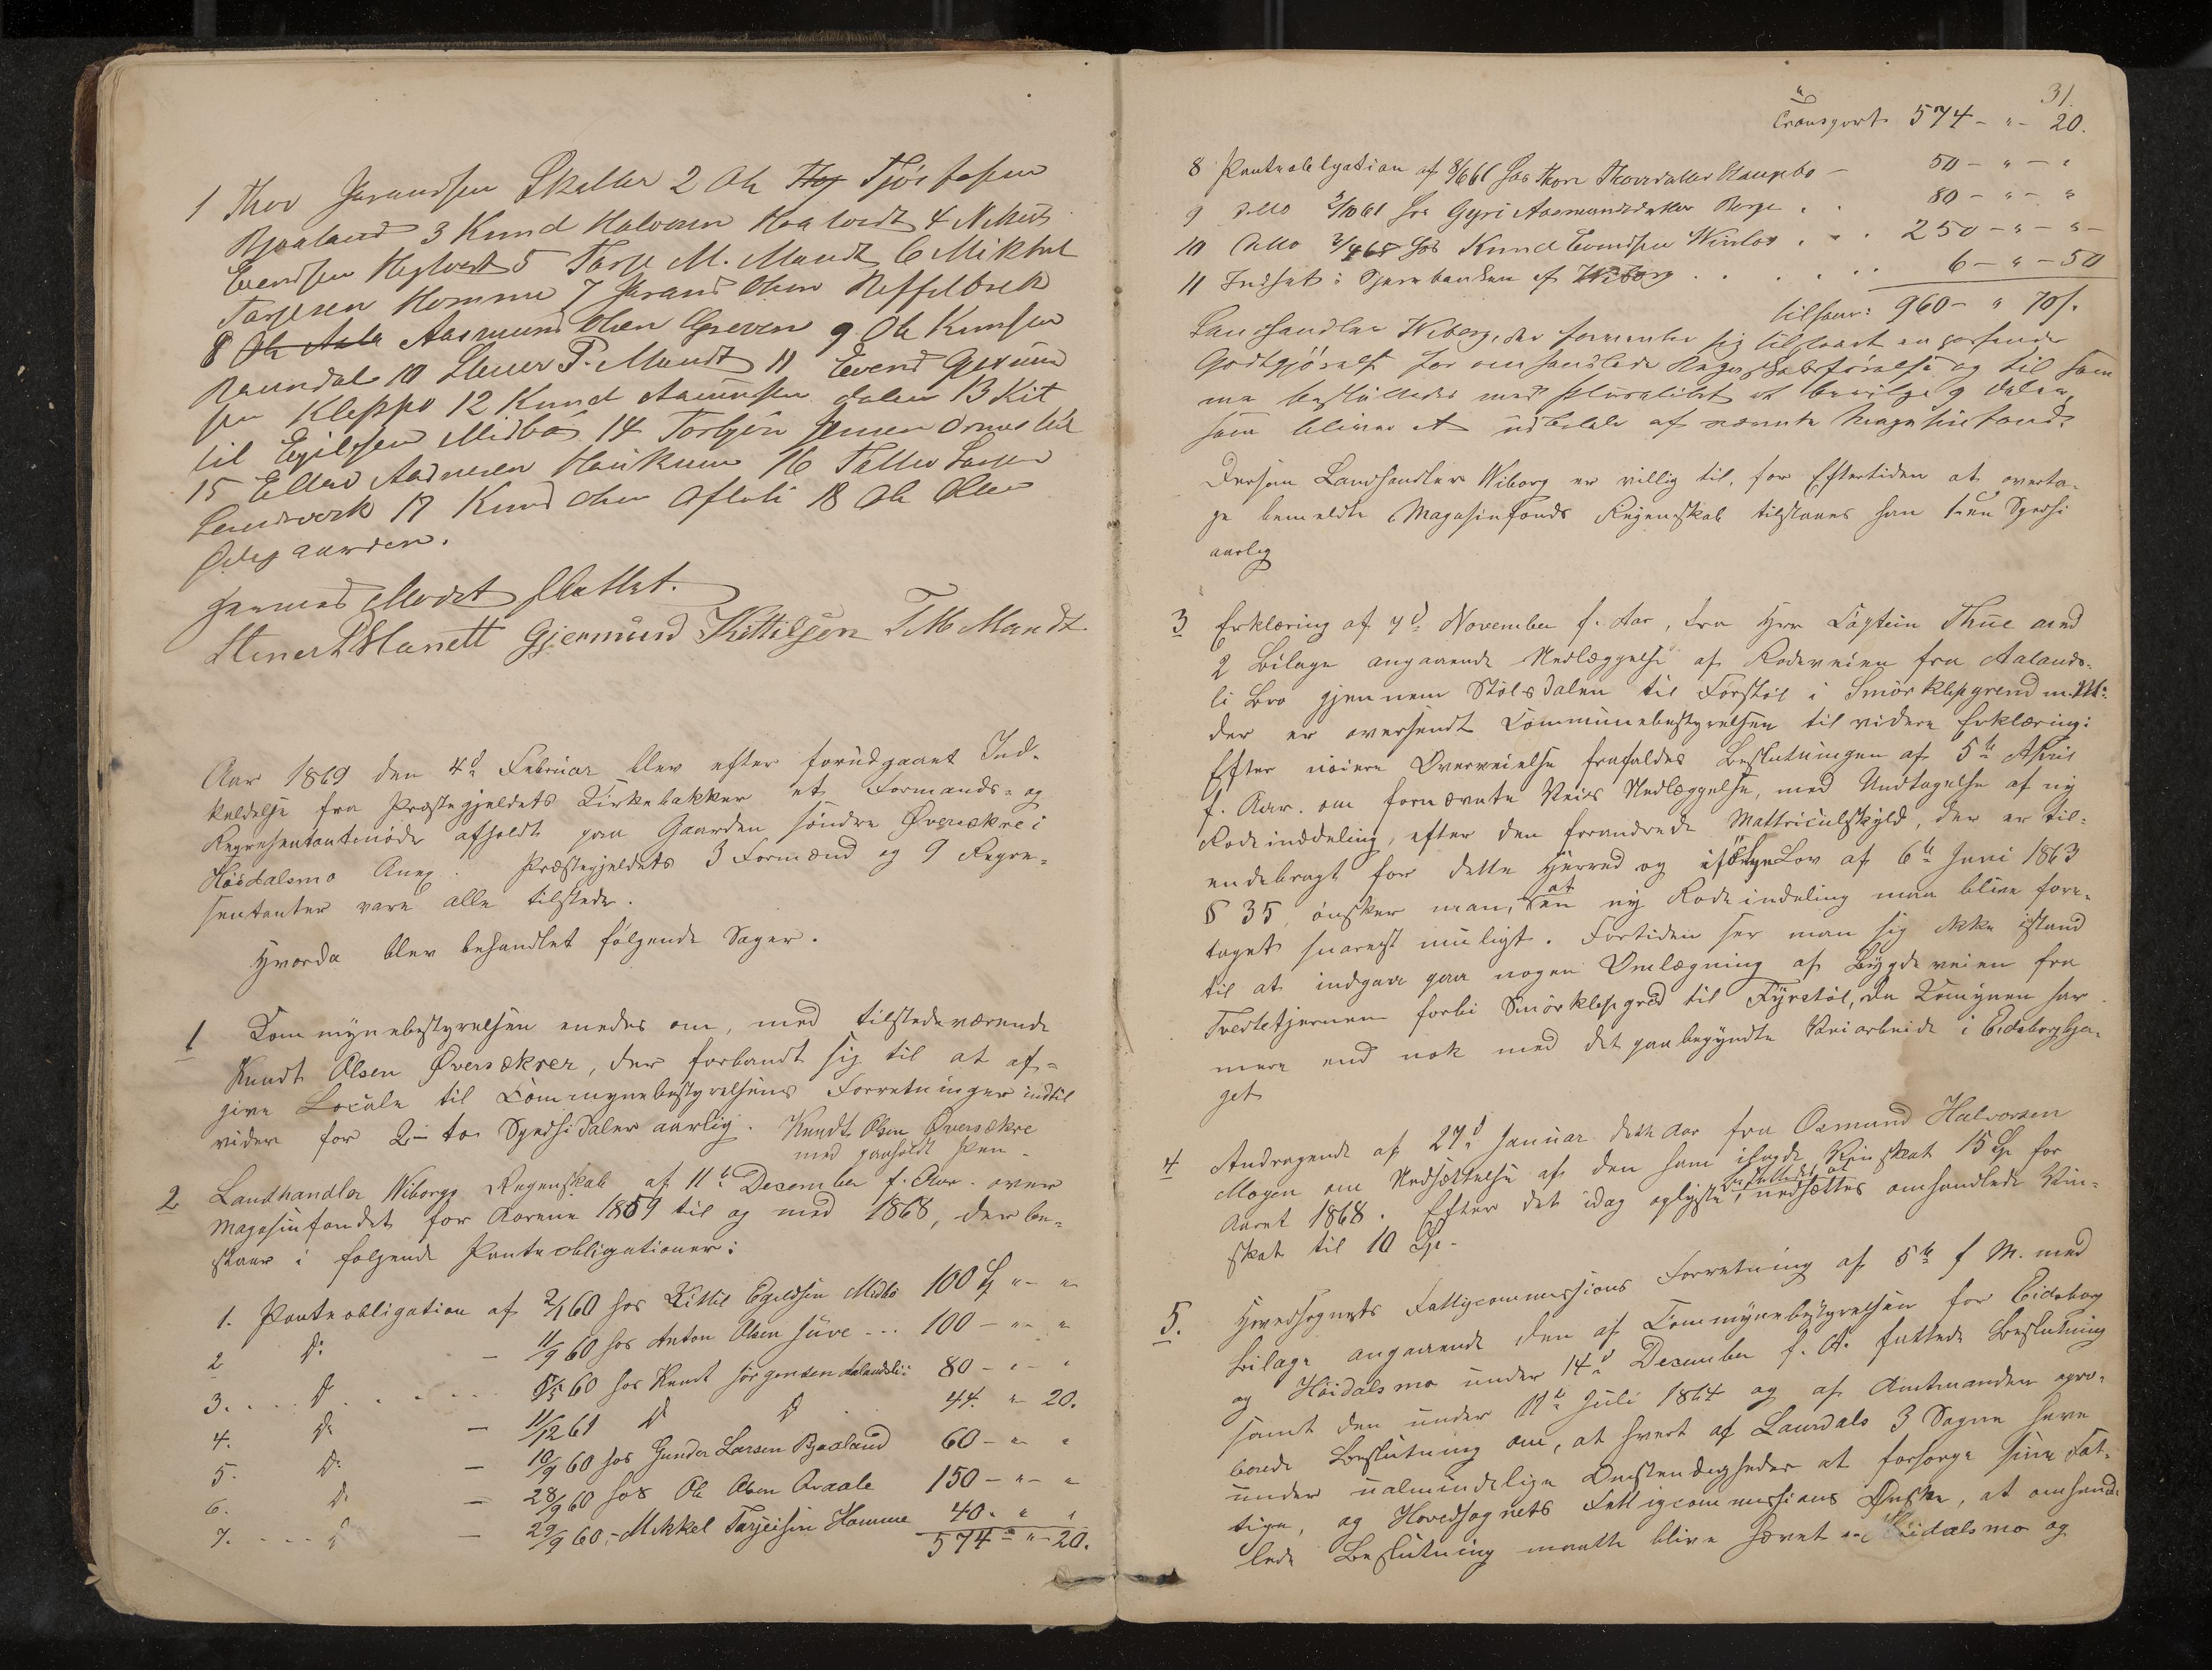 1 Thor Jorandsen Skaller 2 Ole Tjøstofsen
Bjaaland 3 Knud Halvorsen Haatvedt 4 Nikuls
Evendsen Hegtvedt 5 Tarje M. Mandt 6 Mikkel
Tarjesen Homme 7 Jorand Olsen Neffelbrek
8 Aasmund Olsen Greven 9 Ole Knudsen
Ramndal 10 Stener P. Mandt 11 Evend Germun
sen Kleppo 12 Knud Aamunsen Dalen 13 Kit
til Egilsen Midbø 14 Torbjørn Jensen Ormeslid
15 Ellev Aadnesen Haukum 16 Tallev Larsen
Lundevork 17 Knud Olsen Ofteli 18 Ole Olsen
Ødegaarden.
Slettet.
Stener P Mandt Gjermund Kittilsen T M Mandt
Aar 1869 den 4d Februar blev efter forudgaaet Ind-
kaldelse fra Præstegjeldets Kirkebakker et Formands- og
Representantmøde afholdt paa Gaarden søndre Øversækre i
Høidalsmo Anex. Præstegjeldets 3 Formænd og 9 Repre-
sentanter vare alle tilstede.
Hvorda blev behandlet følgende Sager.
1 Kommynebestyrelsen enedes om, med tilstedeværende
Knudt Olsen Øversækrer, der forbandt sig til at af-
give Locale til Commynebestyrelsens Forretninger indtil
videre for 2 - to Speciesdaler aarlig. Knudt Olsen Øversækre
med paaholdt Pen -
2 Landhandler Wiborgs Regnskab af 11t December f. Aar. over
Magasinfondet for Aarene 1859 til og med 1868, der be-
staar i følgende Panteobligationer:
1. Panteobligation af 2/1 60 hos Kittil Egildsen Midbø 100 Sp " - "
2 Do - 11/9 60 hos Anton Olsen Juve ... 100 - " - "
3. . . . Do . . . . . . 5/5 60 hos Knudt Jørgensen Aalandsli: 80 - " - "
4. Do - 11/12 61 Do Do . 44. " 20.
5. Do - 10/9 60 hos Gunder Larsen Bjaaland 60 - " "
6. Do - 28/9 60 hos Ole Olsen Qvaale 150 - " - "
7. . . . Do - 29/9 60, - Mikkel Tarjeisen Homme 40. " "
574 - " - 20.
31.
Transport 574 - " - 20.
8 Panteobligation af 8/6 61 hos Thore Thorsdatter Haugebo - 50 - " - "
9 Ditto 2/10 61 hos Gyri Aasmundsdatter Berge . . 80 - " - "
10 Ditto 2/4 65 hos Knud Evendsen Vinlov . . . 250 - " - " -
11 Indsat i Sparebanken af Wiborg . . . . . . 6 - " - 50
tilsam: 960 - " 70 s.
Landhandler Wiborg, der formenter sig tilstaaet en passende
Godtgjørelse for omhandlede Regnskabsførelse og til Sam
me besluttedes med Pluralitet at bevilge 9 Daler,
som bliver at udbetale af nævnte Magasinfond.
Dersom Landhandler Wiborg er villig til, for Eftertiden at overta-
ge bemeldte Magasinfonds Regnskab tilstaaes han 1 - en Specie
aarlig
3 Erklæring af 7d November f. Aar, fra Hrr Captein Thue med
2 Bilage angaaende Nedlæggelse af Rodeveien fra Aalands-
li Bro gjennem Stølsdalen til Førstøl i Smørklepgrend m. M:
der er oversendt Communebestyrelsen til videre Erklæring:
Efter nøiere Overveielse frafaldes Beslutningen af 5te April
f. Aar. om fornævnte Veies Nedlæggelse, med Undtagelse af ny
Rodeinddeling, efter den forandrede Mattriculskyld, der er til-
endebragt for dette Herred og ifølge Lov af 6te Juni 1863
§ 35, ønsker man, at en ny Rodeindeling maa blive fore-
taget snarest muligt. Fortiden ser man sig ikke istand
til at indgaa paa nogen Omlægning af Bygdeveien fra
Tveitetjernen forbi Smørklepgrend til Fyrestøl, da Komynen har
mere end nok med det paabegyndte Veiarbeide i Eidsborgba-
get
4 Andragende af 27d Januar dette Aar fra Osmund Halvorsen
Mogen om Nedsættelse af den ham ilagde Veiskat 15 Sp for
Aaret 1868. Efter det idag oplyste besluttedes at nedsættes omhandlede Vei-
skat til 10 Sp -
5. Hovedsognets Fattigcommissions Forretning af 5te f M. med
Bilage angaaende den af Commynebestyrelsen for Eidsborg
og Høidalsmo under 14d December f. A. fattede Beslutning
samt den under 11te Juli 1864 og af Amtmanden apro-
berede Beslutning om, at hvert af Laurdals 3 Sogne have
under ualmindelige Omstendigheder at forsørge sine Fat-
tige, og Hovedsognets Fattigcommissions Ønske, at omhand-
lede Beslutning maatte blive hævet. Høidalsmo og